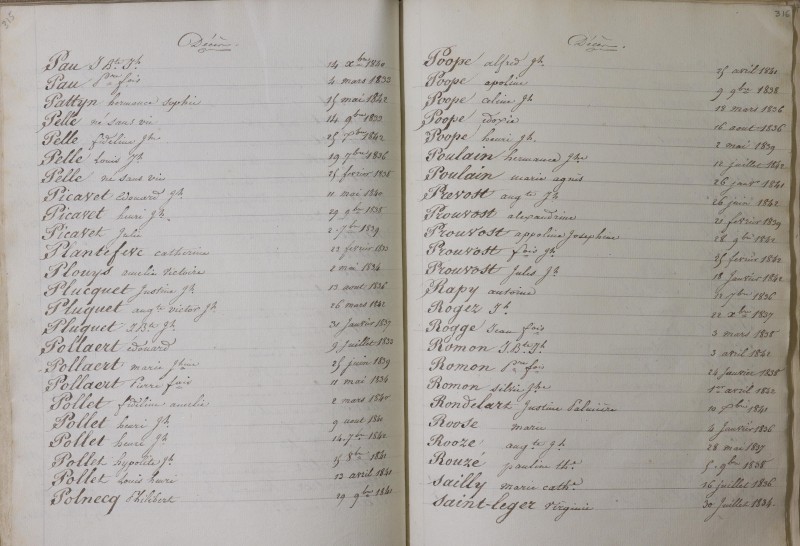 315
Décès.
Pau J Bte Jh 14 xbre 1840
Pau Pre fois 4 mars 1833
Pattyn hermance Sophie 15 mai 1842
Pelle né sans vie 14 9bre 1833
Pelle fidéline Jhe 25 7bre 1842
Pelle Louis Jh 19 7bre 1836
Pelle né sans vie 21 fevrier 1838
Picavet édouard Jh 11 mai 1840
Picavet henri Jh 29 9bre 1838
Picavet Julie 2 7bre 1839
Plantefeve catherine 22 fevrier 1833
Plouys amelie victoire 2 mai 1834
Plucquet Justine Jh 13 aout 1836
Pluquet augte victor Jh 26 mars 1842
Pluquet J Bte Jh 30 Janvier 1837
Pollaert édouard 9 Juillet 1833
Pollaert marie Jhine 25 juin 1839
Pollaert Pierre fois 11 mai 1834
Pollet fidéline amelie 2 mars 1840
Pollet henri Jh 9 aout 1840
Pollet henri Jh 14 7bre 1840
Pollet hypolite Jh 15 8bre 1841
Pollet Louis henri 13 avril 1841
Polnecq Philibert 19 9bre 1841
316
Décès.
Poope alfred Jh 25 avril 1841
Poope apoline 9 9bre 1838
Poope celine Jh 18 mars 1836
Poope 16 aout 1836
Poope henri Jh 2 mai 1839
Poulain hermance Jhe 12 Juillet 1842
Poulain marie agnis 26 janv 1841
Prevost augte Jh 26 juin 1842
Prouvost alexandrine 21 fevrier 1839
Prouvost appoline Josephine 28 9bre 1842
Prouvost fois Jh 25 fevrier 1842
Prouvost Jules Jh 18 Janvier 1842
Rapy antoine 22 7bre 1836
Roger Jh 22 xbre 1837
Rogge Jean fois 3 mars 1838
Romon J Bte Jh 3 avril 1842
Romon Pre fois 24 Janvier 1838
Romon silvie Jhe 1er avril 1842
Rondelart Justine Palmire 10 7bre 1841
Roose marie 4 Janvier 1836
Rooze augte Jh 28 mai 1837
Rouzé pauline the 5 9bre 1838
Sailly marie cathe 16 juillet 1836
Saint-leger virginie 30 Juillet 1834.